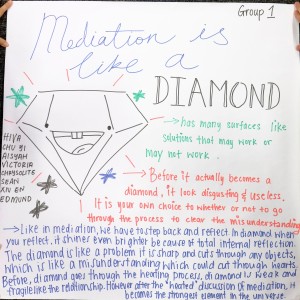 Group 1
Mediation is
like a
DIAMOND
→ has many surfaces like
solutions that may work or
may not work.
HIVA
CHU YI
AISYAH
VICTORIA
CHRYSOLITE
SEAN
XIN EN
EDMUND
→ Before it actually becomes a
diamond, it look disgusting & useless.
It is your own choice to whether or not to go
through the process to clear the misunderstanding
→ Like in mediation, we have to step back and reflect. In diamond when
you reflect, it shines even brighter because of total internal reflection.
The diamond is like a problem it is sharp and cuts through any objects,
which is like a misunderstanding which could cut through hearts.
Before, diamond goes through the heating process, diamond is weak and
fragile like the relationship. However after the "heated" discussion of mediation, it
becomes the strongest element in the universe